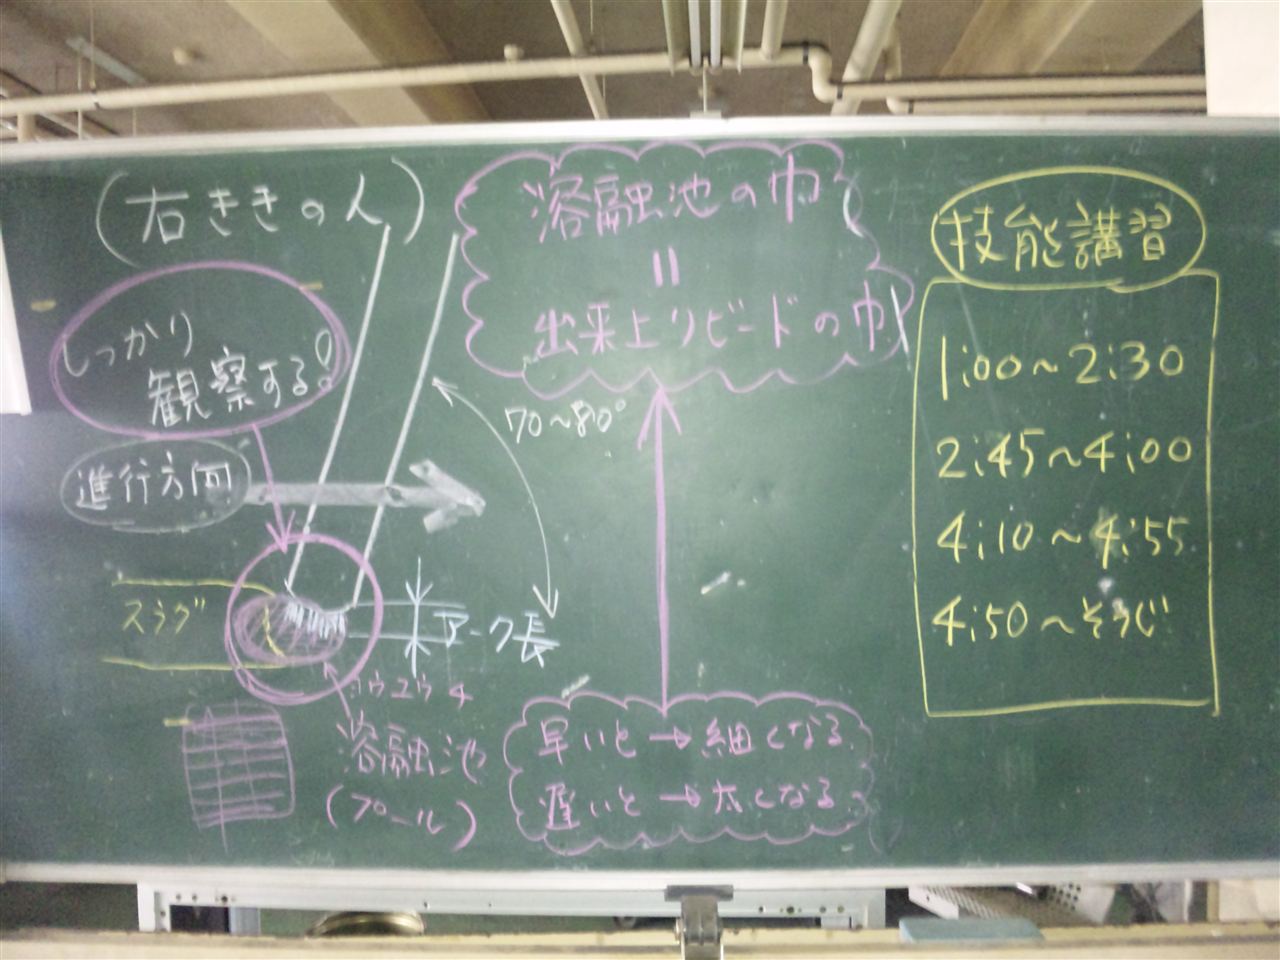 (右ききの人)
しっかり
観察する!
進行方向
スラグ
アーク長
70~80°
ヨウユウチ
溶融池
(プール)
溶融池の巾
=
出来上りビードの巾
早いと→細くなる
遅いと→太くなる
技能講習
1:00~2:30
2:45~4:00
4:10~4:55
4:50~そうじ